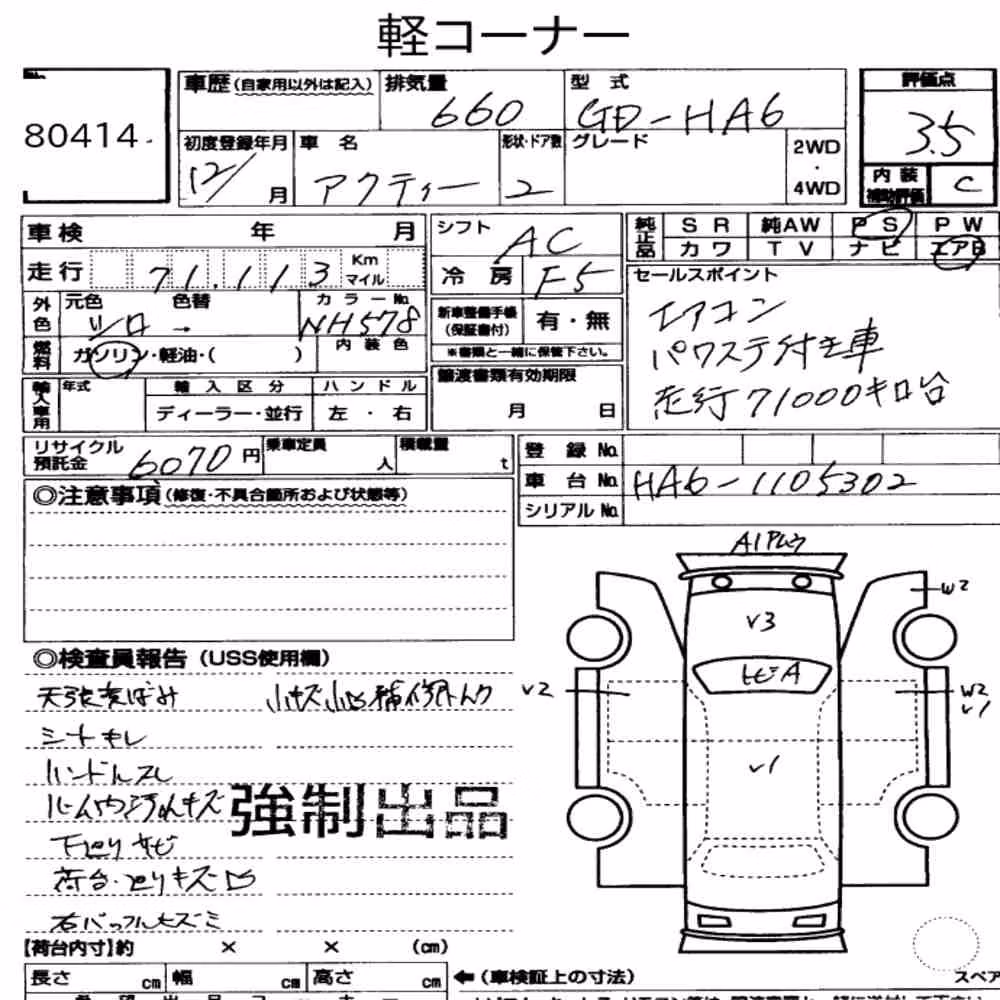 軽コーナー
80414
車歴(自家用以外は記入) 排気量 660 型式 GD-HA6 評価点 3.5
初度登録年月 12/ 月 車名 アクティー 形状・ドア数 2 グレード 2WD・4WD 内装補助評価 C
車検 年 月 シフト AC 純正品 SR 純AW PS PW
走行 71,113 Km マイル 冷房 F5 カワ TV ナビ エアB
外色 元色 シロ 色替 → カラーNo. NH578 新車整備手帳(保証書付) 有・無 セールスポイント
エアコン
燃料 ガソリン・軽油・( ) 内装色 ※書類と一緒に保管下さい。 パワステ付き車
輸入車用 年式 輸入区分 ハンドル 譲渡書類有効期限 走行71000キロ台
ディーラー・並行 左・右 月 日
リサイクル預託金 6070円 乗車定員 人 積載量 t 登録No.
車台No. HA6-1105302
◎注意事項(修復・不具合箇所および状態等) シリアルNo.
A1
W2
V3
◎検査員報告(USS使用欄)
V2 W2
V1
シートキレ
ハンドルスレ
V1
強制出品
下廻りサビ
【荷台内寸】約 × × (cm)
長さ cm 幅 cm 高さ cm ←(車検証上の寸法) スペア